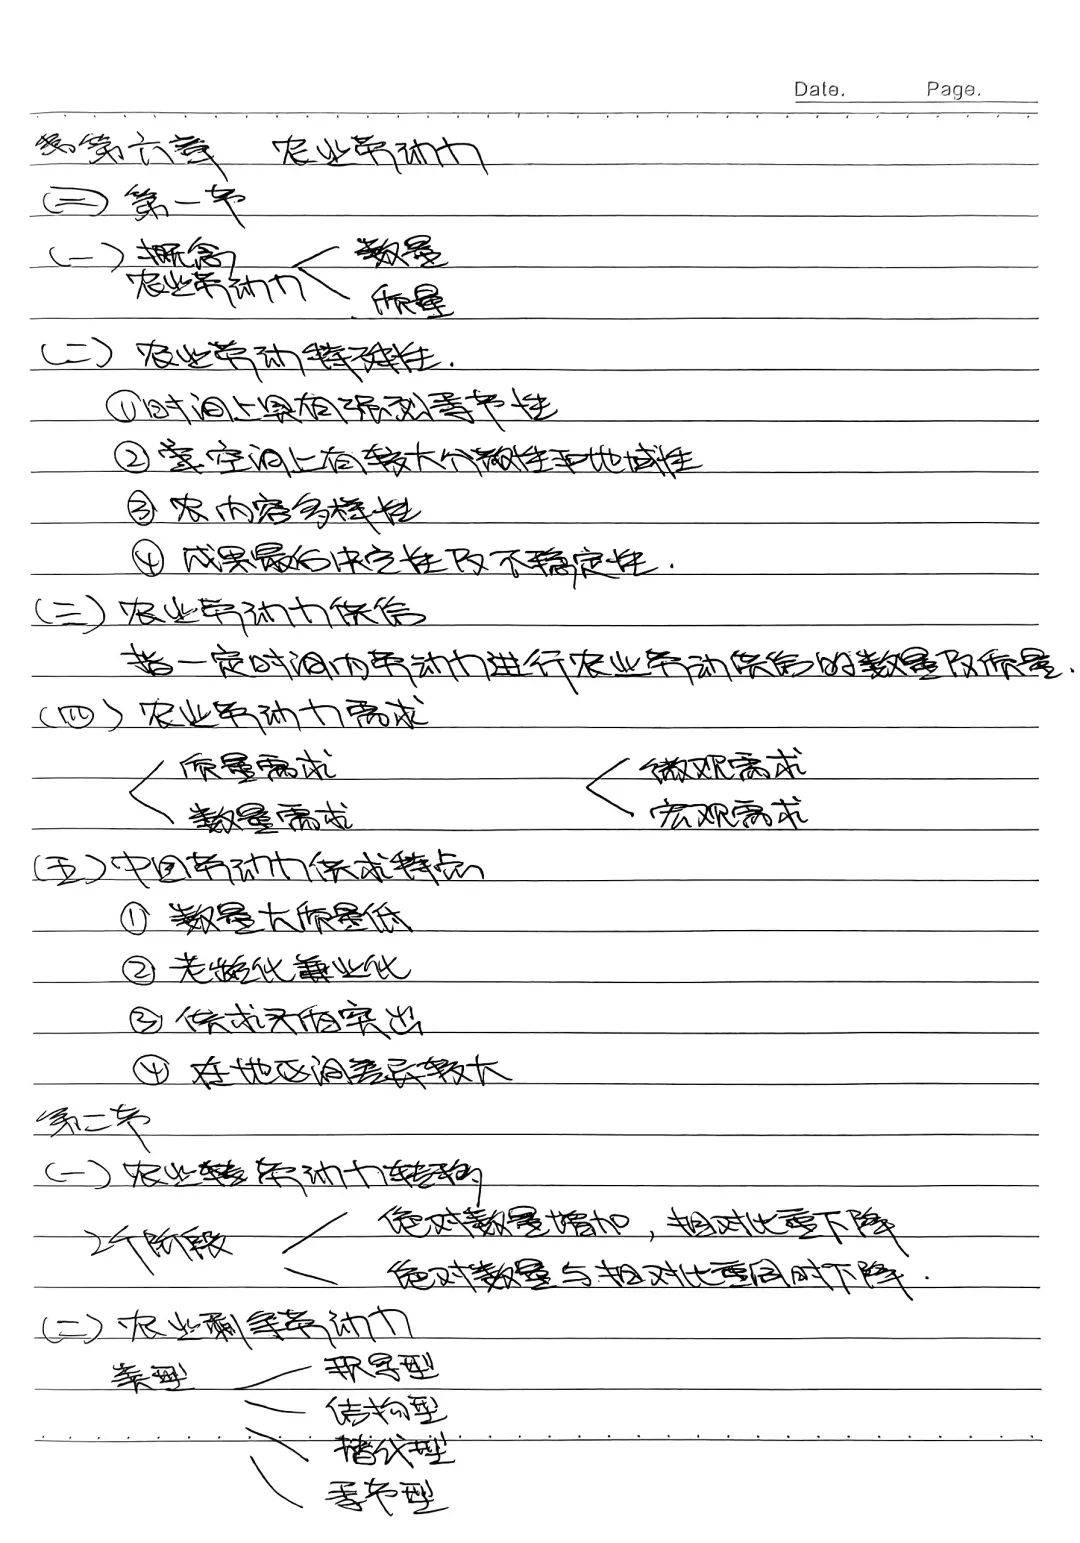 Date. Page.
第六章 农业劳动力
(三) 第一节
(一) 概念 数量
农业劳动力
质量
(二) 农业劳动特殊性.
①时间上具有强烈季节性
② 空间上有较大分散性和地域性
③ 农内容多样性
④ 成果最后决定性及不稳定性.
(三) 农业劳动力供给
指一定时间内劳动力进行农业劳动供给的数量及质量.
(四) 农业劳动力需求
质量需求 微观需求
数量需求 宏观需求
(五) 中国劳动力供求特点
① 数量大质量低
② 老龄化兼业化
③ 供求矛盾突出
④ 在地区间差异较大
第二节
(一) 农业转劳动力转移
绝对数量增加, 相对比重下降
2个阶段
绝对数量与相对比重同时下降.
(二) 农业剩余劳动力
类型 积导型
结构型
替代型
季节型